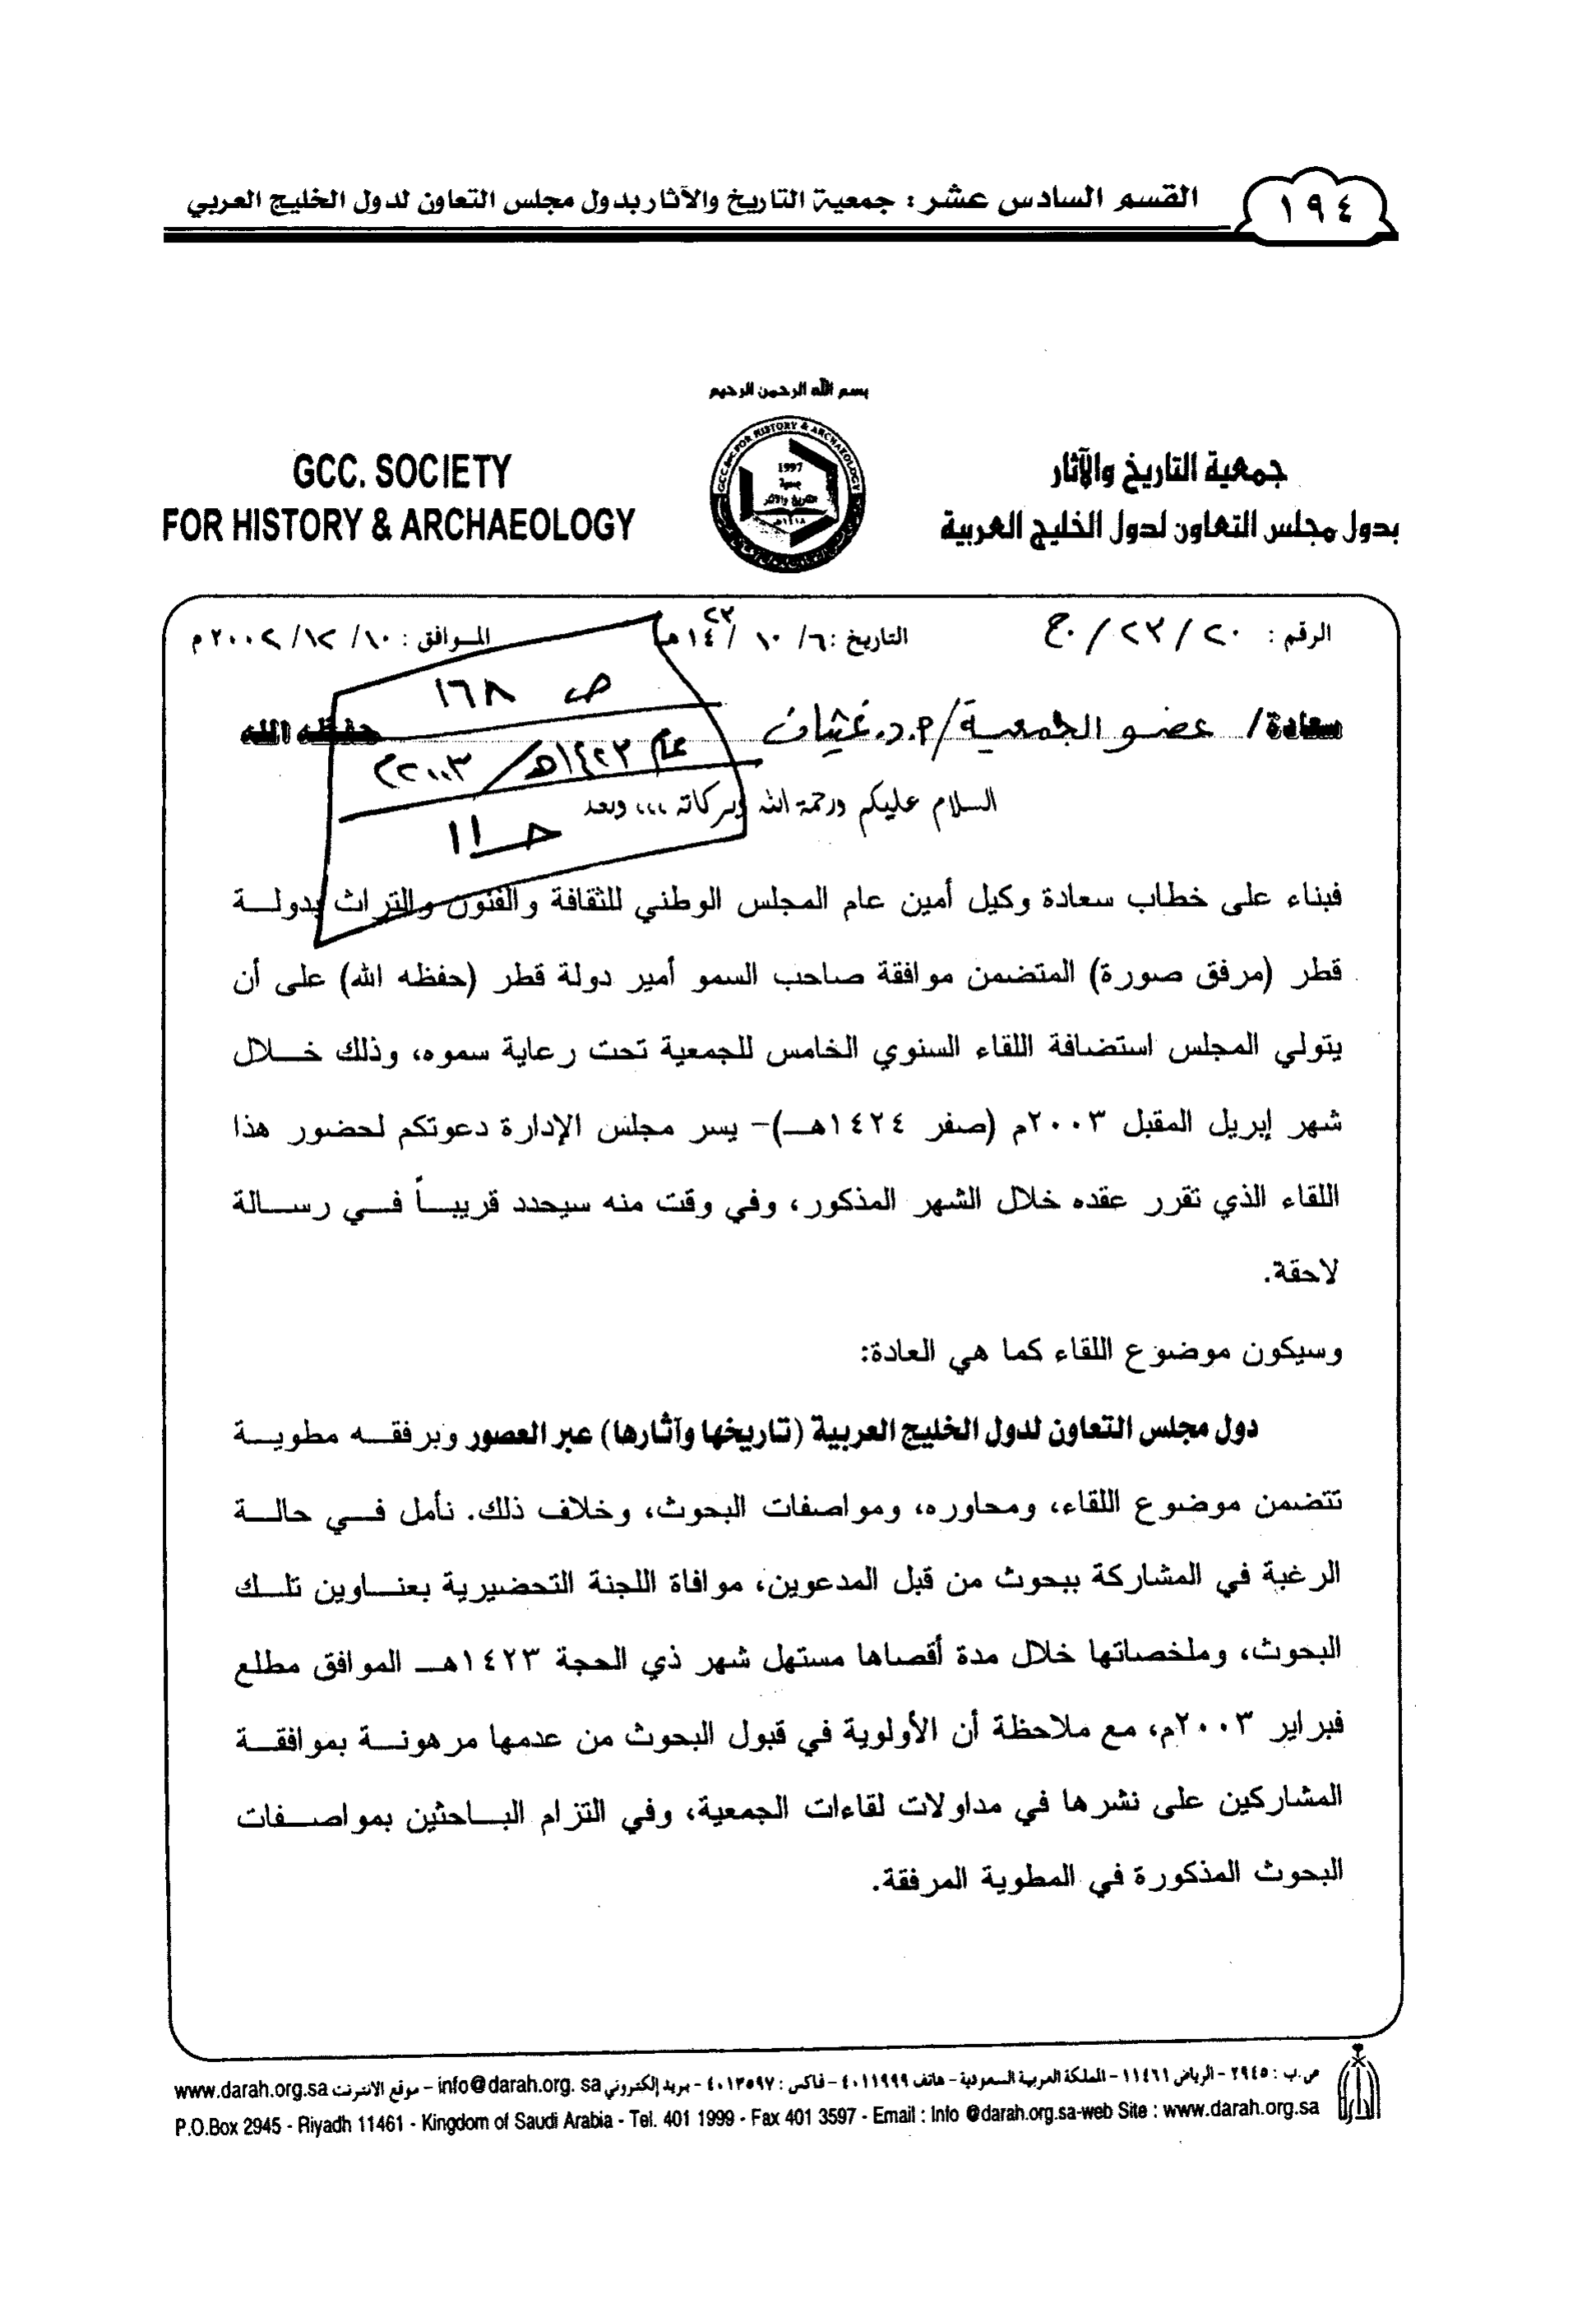 ١٩٤
القسم السادس عشر : جمعية التاريخ والآثار بدول مجلس التعاون لدول الخليج العربي
بسم الله الرحمن الرحيم
GCC. SOCIETY
FOR HISTORY & ARCHAEOLOGY
جمعية التاريخ والآثار
بدول مجلس التعاون لدول الخليج العربية
1997
الرقم : ٢٠ / ٢٣ / ج
التاريخ : ٦ / ١٠ / ١٤٢٣هـ
المـوافق : ١٠ / ١٢ / ٢٠٠٢م
ص ١٦٨
سعادة / عضو الجمعية / أ.د. غيثان
حفظه الله
عام ١٤٢٣هـ / ٢٠٠٣م
السلام عليكم ورحمة الله وبركاته ،،، وبعد
حـ ١١
فبناء على خطاب سعادة وكيل أمين عام المجلس الوطني للثقافة والفنون والتراث بدولـــة
قطر (مرفق صورة) المتضمن موافقة صاحب السمو أمير دولة قطر (حفظه الله) على أن
يتولي المجلس استضافة اللقاء السنوي الخامس للجمعية تحت رعاية سموه، وذلك خـــلال
شهر إبريل المقبل ٢٠٠٣م (صفر ١٤٢٤هـ)– يسر مجلس الإدارة دعوتكم لحضور هذا
اللقاء الذي تقرر عقده خلال الشهر المذكور، وفي وقت منه سيحدد قريبـــاً فـــي رســـالة
لاحقة.
وسيكون موضوع اللقاء كما هي العادة:
دول مجلس التعاون لدول الخليج العربية (تاريخها وآثارها) عبر العصور وبرفقـــه مطويـــة
تتضمن موضوع اللقاء، ومحاوره، ومواصفات البحوث، وخلاف ذلك. نأمل فـــي حالـــة
الرغبة في المشاركة ببحوث من قبل المدعوين، موافاة اللجنة التحضيرية بعنـــاوين تلـــك
البحوث، وملخصاتها خلال مدة أقصاها مستهل شهر ذي الحجة ١٤٢٣هـ الموافق مطلع
فبراير ٢٠٠٣م، مع ملاحظة أن الأولوية في قبول البحوث من عدمها مرهونـــة بموافقـــة
المشاركين على نشرها في مداولات لقاءات الجمعية، وفي التزام البـــاحثين بمواصـــفات
البحوث المذكورة في المطوية المرفقة.
ص.ب : ٢٩٤٥ - الرياض ١١٤٦١ - المملكة العربية السعودية - هاتف ٤٠١١٩٩٩ - فاكس : ٤٠١٣٥٩٧ - بريد إلكتروني info@darah.org. sa - موقع الانترنت www.darah.org.sa
P.O.Box 2945 - Riyadh 11461 - Kingdom of Saudi Arabia - Tel. 401 1999 - Fax 401 3597 - Email : Info @darah.org.sa-web Site : www.darah.org.sa